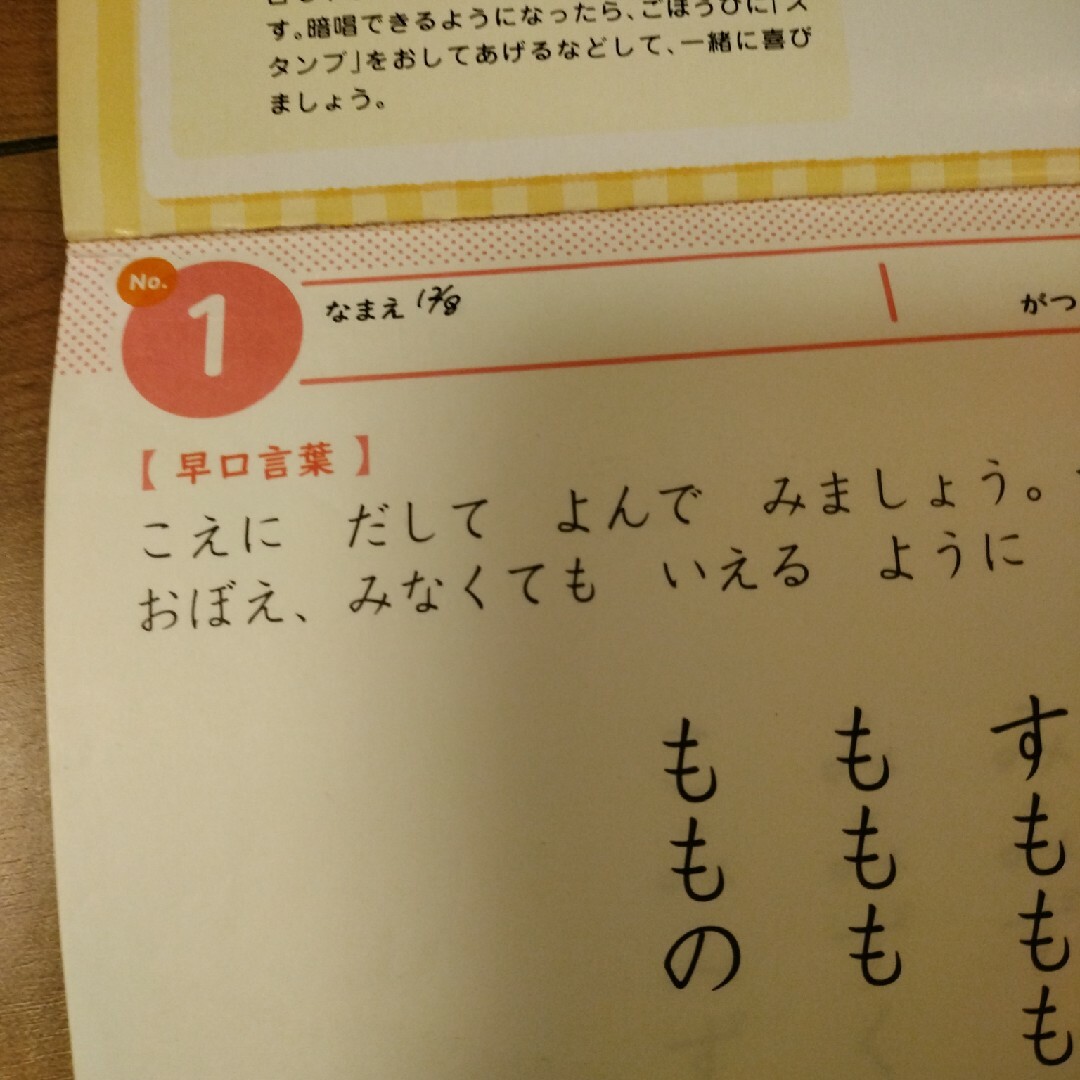 す。暗唱できるようになったら、ごほうびに「ス
タンプ」をおしてあげるなどして、一緒に喜び
ましょう。
No.
1
なまえ 12/8
がつ
【 早口言葉 】
こえに だして よんで みましょう。
おぼえ、みなくても いえる ように
すももも
ももも
ももの